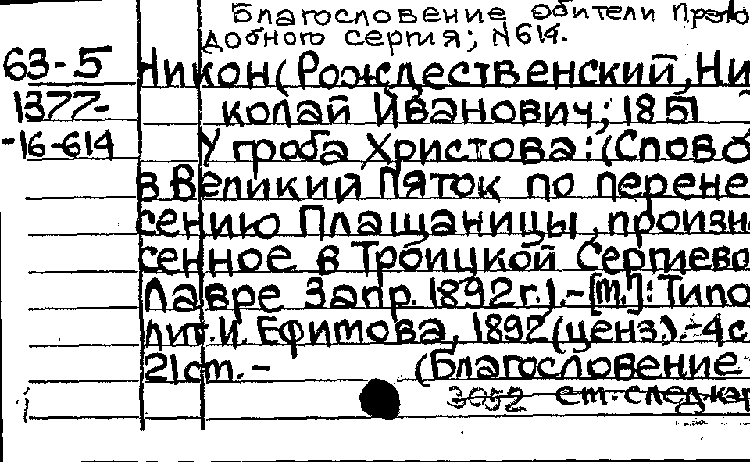 Благословение обители Препо
добного Сергия; N 614.
63-5 Никон (Рождественский, Ни
1377- колай Иванович; 1851
-16-614 У гроба Христова: (Слово
в Великий Пяток по перене
сению Плащаницы, произне
сенное в Троицкой Сергиево
Лавре 3 апр. 1892 г.). - [М.]: Типо
лит. И. Ефимова, 1892 (ценз.). - 4 с
21 см. - (Благословение
3052 см. след. кар